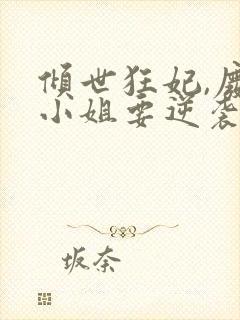 倾世狂妃,废
小姐要逆袭
坂奈